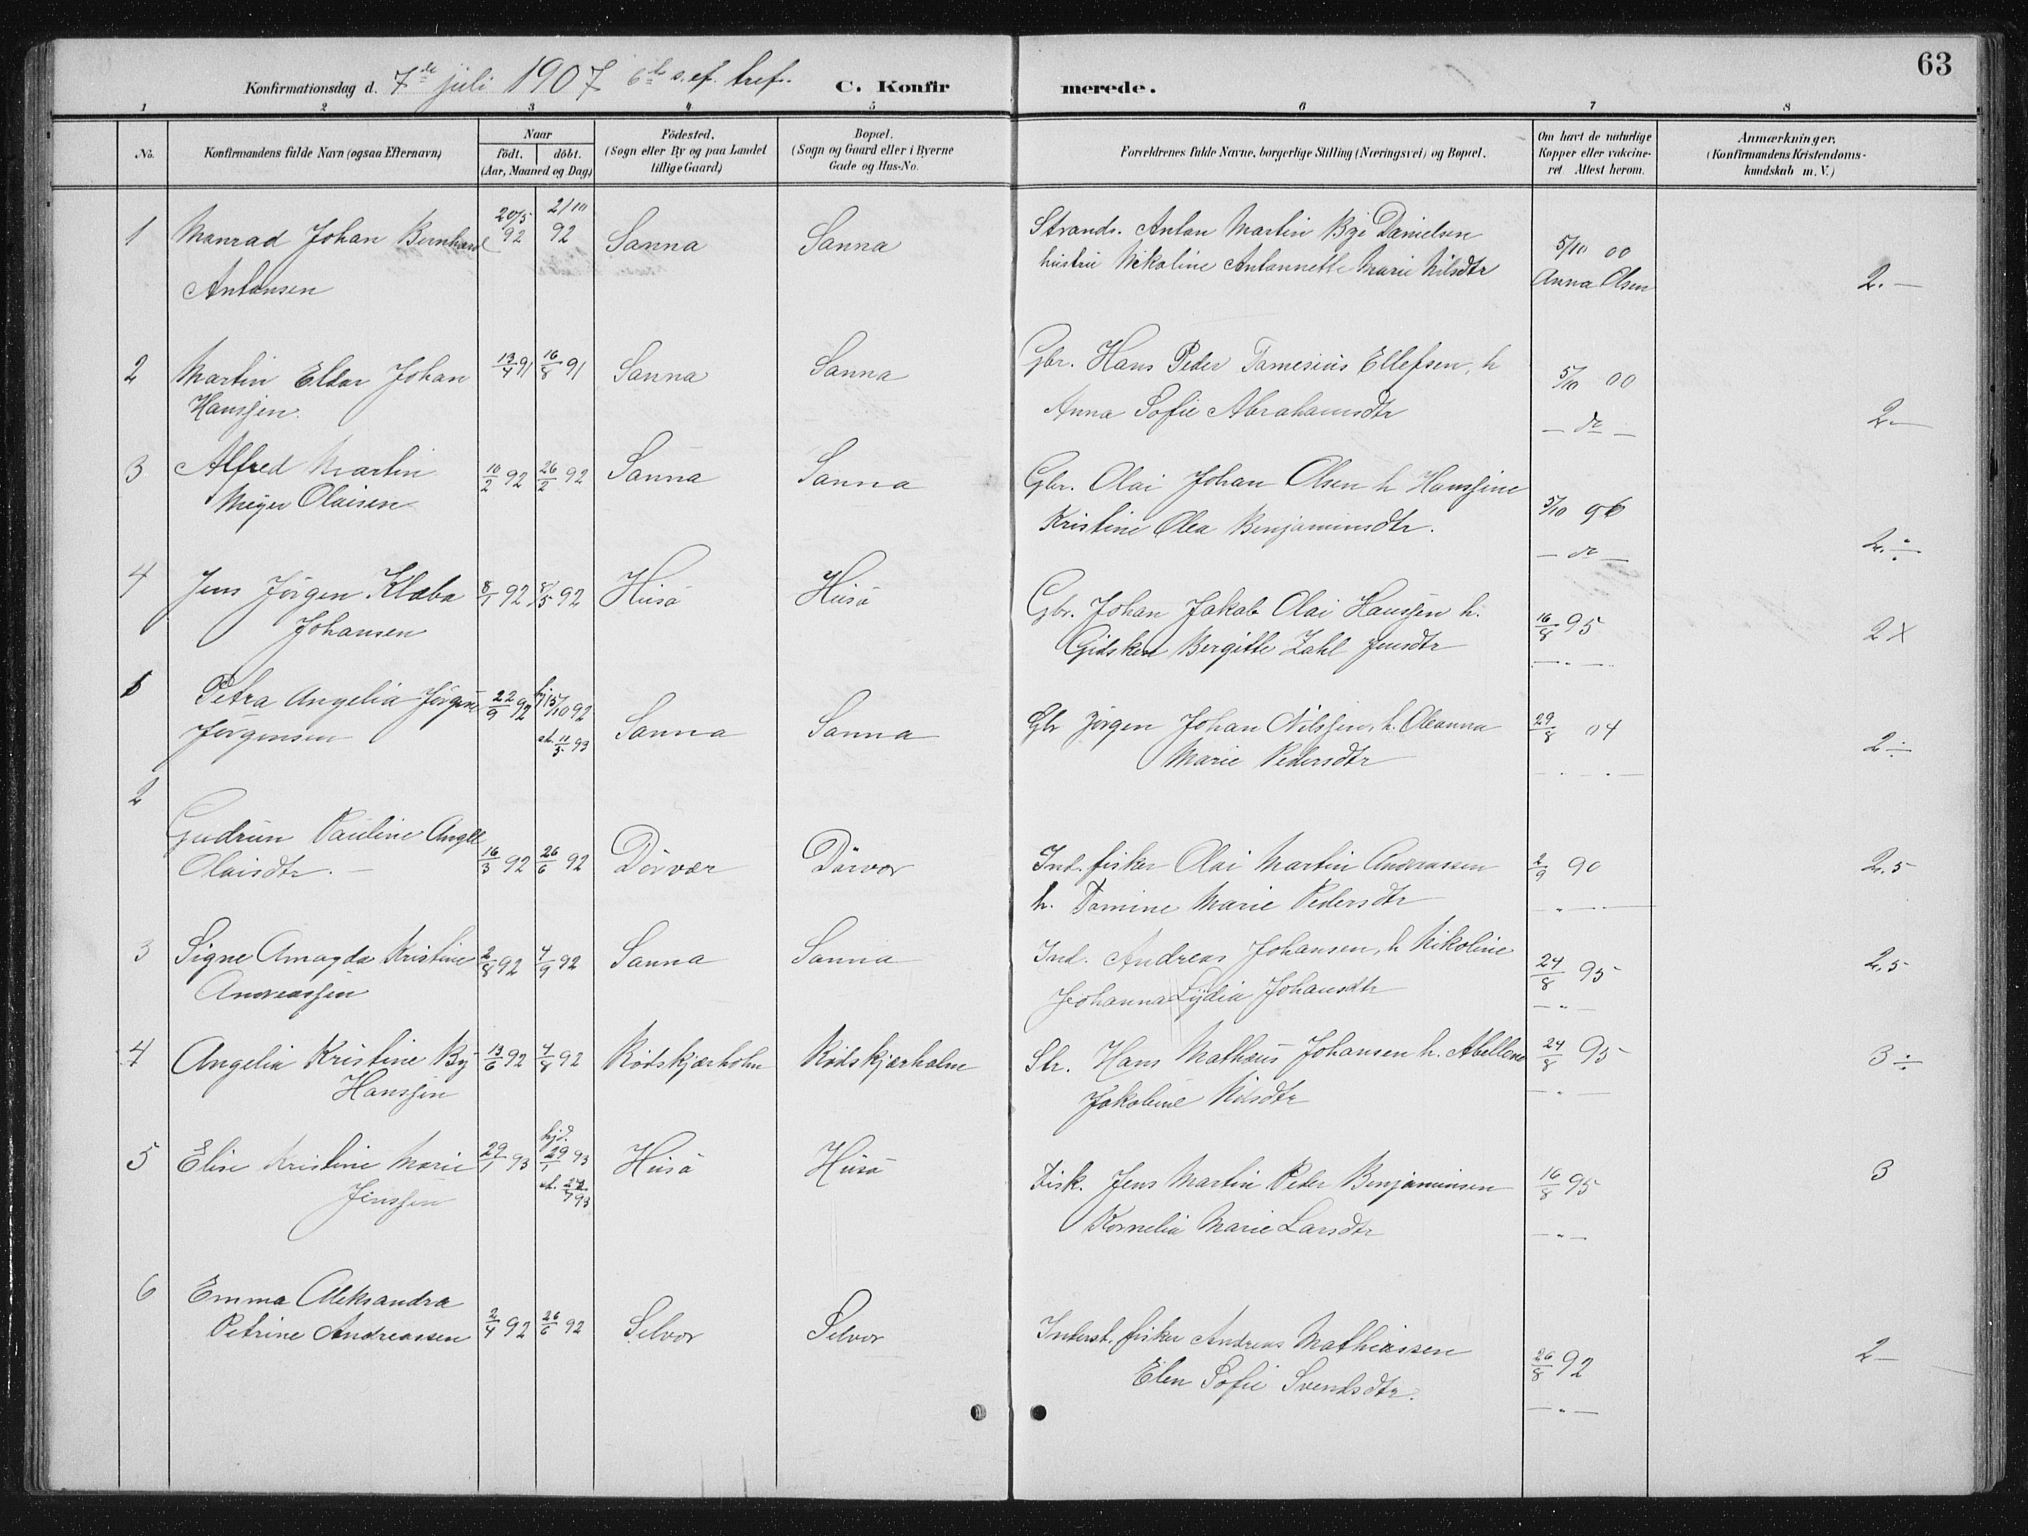 63
Konfirmationsdag d. 7de juli 1907 6te s. ef. tref. C. Konfirmerede.
1 2 3 4 5 6 7 8
No.
Konfirmandens fulde Navn (ogsaa Efternavn)
Naar
födt. döbt.
(Aar, Maaned og Dag)
Födested.
(Sogn eller By og paa Landet
tillige Gaard)
Bopæl.
(Sogn og Gaard eller i Byerne
Gade og Hus-No.
Forældrenes fulde Navne, borgerlige Stilling (Næringsvei) og Bopæl.
Om havt de naturlige
Kopper eller vakcine-
ret. Attest herom.
Anmærkninger.
(Konfirmandens Kristendoms-
kundskab m. V.)
1 Manrad Johan Bernhard 20/5 92 2/10 92 Sanna Sanna Strands. Anton Martin Bye Danielsen 5/10 00
Antonsen hustru Nikoline Antonnette Marie Nilsdtr Anna Olsen 2.-
2 Martin Eldar Johan 13/4 91 16/8 91 Sanna Sanna Gbr. Hans Peder Tomesius Ellefsen, h 5/10 00
Hanssen. Anna Sofie Abrahamsdtr - do - 2.-
3 Alfred Martin 10/2 92 26/2 92 Sanna Sanna Gbr. Olai Johan Olsen h Hanssine 5/10 96
Meyer Olaisen Kristine Olea Benjaminsdtr. - do - 2.÷
4 Jens Jörgen Klæbo 8/1 92 8/5 92 Husö Husö Gbr. Johan Jakob Olai Hanssen h. 16/8 95
Johansen Gidsken Bergitte Zahl Jensdtr - " - 2 X
1 Petra Angelia Jörgine 22/9 92 hj 15/10 92 Sanna Sanna Gbr Jörgen Johan Nilssen, h. Oleanna 29/8 04
Jörgensen st. 11/5 93 Marie Pedersdtr - " - 2 ÷
2 Gudrun Pauline Angell 16/3 92 26/6 92 Dörvær Dörvær Ind. fisker Olai Martin Andreassen 2/9 90 2.5
Olaisdtr. - h. Tomine Marie Pedersdtr - " -
3 Signe Amagda Kristine 2/8 92 4/9 92 Sanna Sanna Ind. Andreas Johansen, h Nikoline 24/8 95 2.5
Andreassen Johanna Lydia Johansdtr - " -
4 Angelia Kristine By 13/6 92 4/8 92 Rödskjærholm Rödskjærholm Str. Hans Mathæus Johansen h. Abellone 24/8 95 3 ÷
Hanssen Jakobine Nilsdtr - " -
5 Elise Kristine Marie 29/1 93 hjd. 29/1 93 Husö Husö Fisk. Jens Martin Peder Benjaminsen 16/8 95 3
Jenssen st. 93 Kornelia Marie Larsdtr - " -
6 Emma Aleksandra
Petrine Andreassen 2/4 92 26/6 92 Selvær Selvær Inderst. fisker Andreas Mathiassen 26/8 92 2 -
Elen Sofie Svendsdtr. - " -